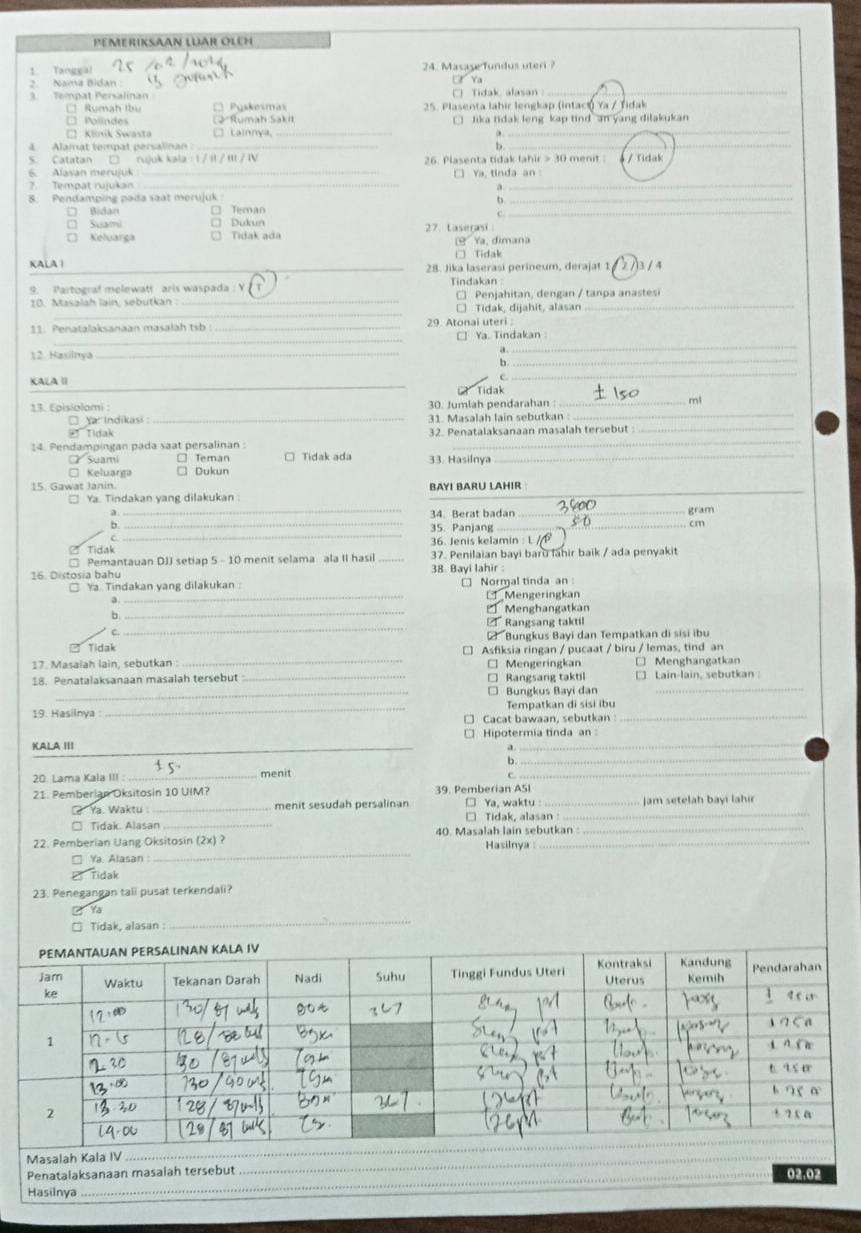 PEMERIKSAAN LUAR OLEH
1. Tanggal 25 /02 /2024
2. Nama Bidan :
3. Tempat Persalinan
Rumah Ibu Puskesmas
Polindes Rumah Sakit
Klinik Swasta Lainnya,
4. Alamat tempat persalinan :
5. Catatan rujuk kala : I / II / III / IV
6. Alasan merujuk :
7. Tempat rujukan
8. Pendamping pada saat merujuk :
Bidan Teman
Suami Dukun
Keluarga Tidak ada
KALA I
9. Partograf melewati aris waspada : Y / T
10. Masalah lain, sebutkan :
11. Penatalaksanaan masalah tsb :
12. Hasilnya
KALA II
13. Episiolomi :
Ya. Indikasi :
Tidak
14. Pendampingan pada saat persalinan :
Suami Teman Tidak ada
Keluarga Dukun
15. Gawat Janin.
Ya. Tindakan yang dilakukan :
a.
b.
c.
Tidak
Pemantauan DJJ setiap 5 - 10 menit selama ala II hasil
16. Distosia bahu
Ya. Tindakan yang dilakukan :
a.
b.
c.
Tidak
17. Masalah lain, sebutkan :
18. Penatalaksanaan masalah tersebut :
19. Hasilnya :
KALA III
20. Lama Kala III : ± 5. menit
21. Pemberian Oksitosin 10 UIM?
Ya. Waktu : menit sesudah persalinan
Tidak. Alasan
22. Pemberian Uang Oksitosin (2x) ?
Ya. Alasan :
Tidak
23. Penegangan tali pusat terkendali?
Ya
Tidak, alasan :
24. Masase fundus uteri ?
Ya
Tidak, alasan :
25. Plasenta lahir lengkap (intact) Ya / Tidak
Jika tidak leng kap tind an yang dilakukan
a.
b.
26. Plasenta tidak lahir > 30 menit : / Tidak
Ya, tinda an :
a.
b.
c.
27. Laserasi :
Ya, dimana
Tidak
28. Jika laserasi perineum, derajat 1 / 2 / 3 / 4
Tindakan :
Penjahitan, dengan / tanpa anastesi
Tidak, dijahit, alasan
29. Atonai uteri :
Ya. Tindakan :
a.
b.
c.
Tidak
30. Jumlah pendarahan : ± 150 ml
31. Masalah lain sebutkan :
32. Penatalaksanaan masalah tersebut :
33. Hasilnya
BAYI BARU LAHIR :
34. Berat badan gram
35. Panjang 50 cm
36. Jenis kelamin : L / P
37. Penilaian bayi baru lahir baik / ada penyakit
38. Bayi lahir :
Normal tinda an :
Mengeringkan
Menghangatkan
Rangsang taktil
Bungkus Bayi dan Tempatkan di sisi ibu
Asfiksia ringan / pucaat / biru / lemas, tind an
Mengeringkan Menghangatkan
Rangsang taktil Lain-lain, sebutkan :
Bungkus Bayi dan
Tempatkan di sisi ibu
Cacat bawaan, sebutkan :
Hipotermia tinda an :
a.
b.
c.
39. Pemberian ASI
Ya, waktu : Jam setelah bayi lahir
Tidak, alasan :
40. Masalah lain sebutkan :
Hasilnya :
PEMANTAUAN PERSALINAN KALA IV
Jam ke Waktu Tekanan Darah Nadi Suhu Tinggi Fundus Uteri Kontraksi Uterus Kandung Kemih Pendarahan
1 12.00 130/ 87
128/
12.30
13.00 130 /90
2 13.30 128/ 87 367
14.00 128/ 87
Masalah Kala IV
Penatalaksanaan masalah tersebut
Hasilnya
02.02